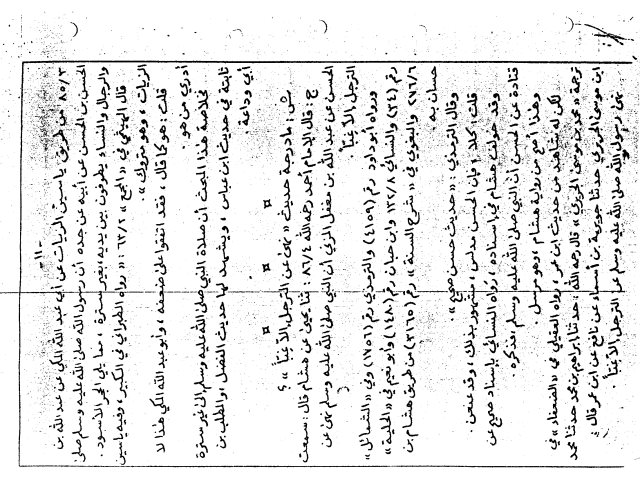 -١١-
٨٥/٣ من طريق ياسين الزيات عن أبي عبد الله المكي عن عبد الله بن
الحسن بن الحسن عن أبيه عن جده أن رسول الله صلى الله عليه وسلم صلى
والرجال والنساء يطوفون بين يديه بغير سترة، مما يلي الحجر الأسود.
قال الهيثمي في «المجمع» ٦٣/٢: «رواه الطبراني في الكبير، وفيه ياسين
الزيات، وهو متروك».
قلت: هو كما قال، فقد اتفقوا على ضعفه، وأبو عبد الله المكي هذا لا
أدري من هو.
خلاصة هذا البحث أن صلاة النبي صلى الله عليه وسلم إلى غير سترة
ثابتة في حديث ابن عباس، ويشهد لها حديث الفضل، والمطلب بن
أبي وداعة.
¤ ¤ ¤
س: ما درجة حديث «نهى عن الترجل إلا غباً»؟
ج: قال الإمام أحمد رحمه الله ٨٦/٤: ثنا يحيى عن هشام قال: سمعت
الحسن عن عبد الله بن مغفل المزني أن النبي صلى الله عليه وسلم نهى عن
الترجل إلا غباً.
ورواه أبو داود رقم (٤١٥٩) والترمذي رقم (١٧٥٦) وفي «الشمائل»
رقم (٣٤) والنسائي ١٣٢/٨ وابن حبان رقم (١٤٨٠) وأبو نعيم في «الحلية»
٢٧٦/٦ والبغوي في «شرح السنة» رقم (٣١٦٥) من طريق هشام بن
حسان به.
وقال الترمذي: «حديث حسن صحيح».
قلت: كلا، فإن الحسن مدلس، مشهور بذلك، وقد عنعن.
وقد خولف هشام في إسناده، رواه النسائي بإسناد صحيح عن
قتادة عن الحسن أن النبي صلى الله عليه وسلم فذكره.
وهذا أصح من رواية هشام، وهو مرسل.
لكن له شاهد من حديث ابن عمر، رواه العقيلي في «الضعفاء» في
ترجمة «محمد بن موسى الجريري» قال رحمه الله: حدثنا إبراهيم بن محمد حدثنا محمد
ابن موسى الجريري حدثنا جويرية بن أسماء عن نافع عن ابن عمر قال:
نهى رسول الله صلى الله عليه وسلم عن الترجل إلا غباً.